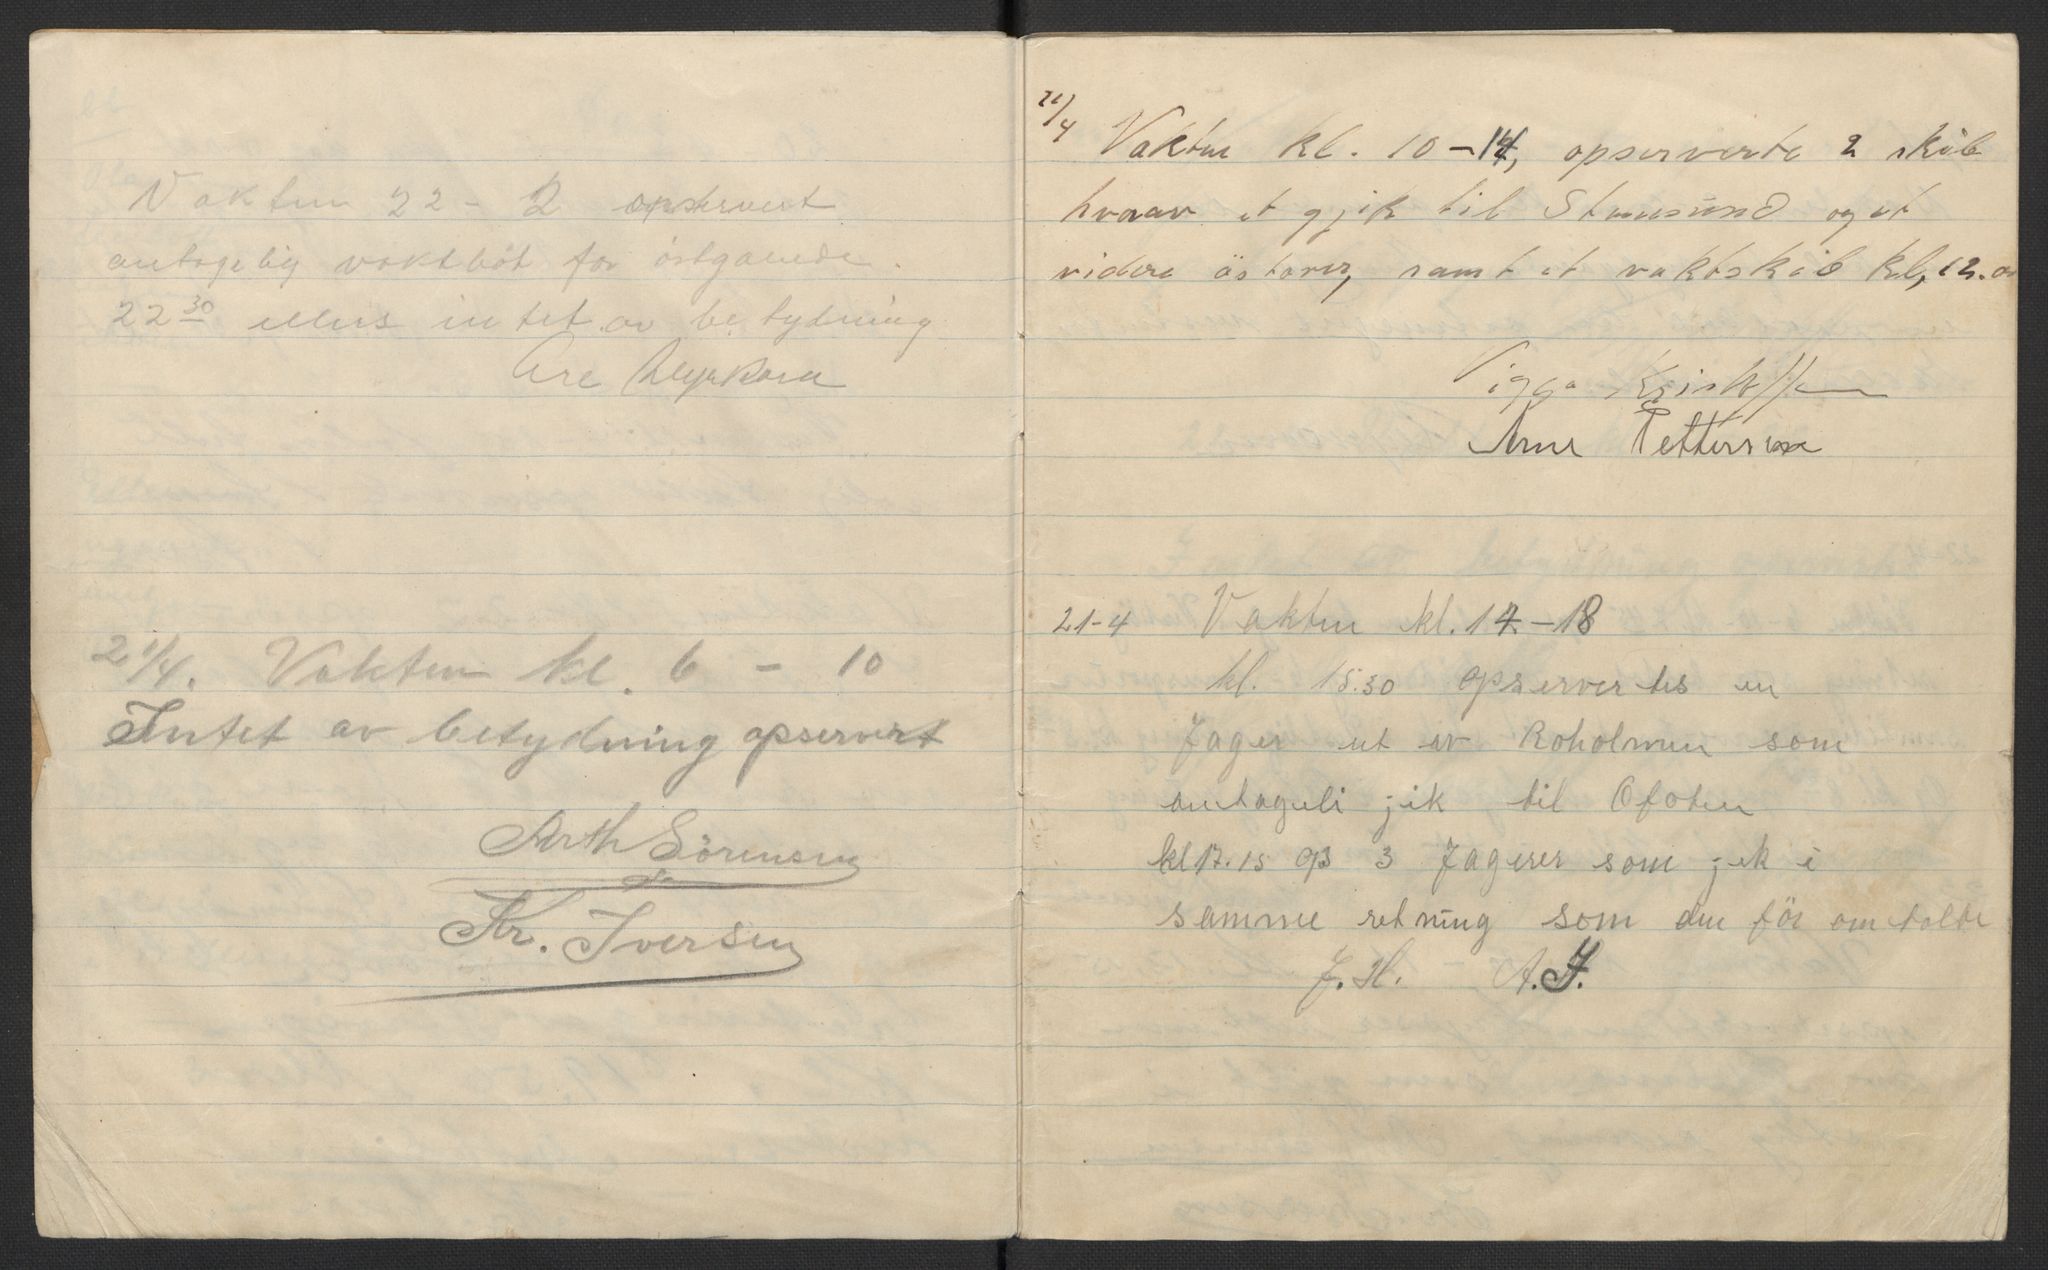 Vakten 22 - 2 opservert
antagelig vaktbåt for östgående
22 30 ellers intet av betydning
Are
21/4. Vakten kl. 6 - 10
Intet av betydning opservert
Arth Sörensen
Kr. Iversen
21/4 Vakten kl. 10 - 14, opserverte 2 skib
hvorav et gjik til Stamsund og et
videre östover, samt et vaktskib kl, 12.00
Viggo Kristoffersen
Arne Pettersen
21-4 Vakten kl. 14 - 18
kl. 15.30 opservertes en
Jager ut av Roholmen som
antageli jik til Ofoten
kl 17.15 ops 3 Jagerer som jek i
samme retning som den för omtalte
J. H. A. J.